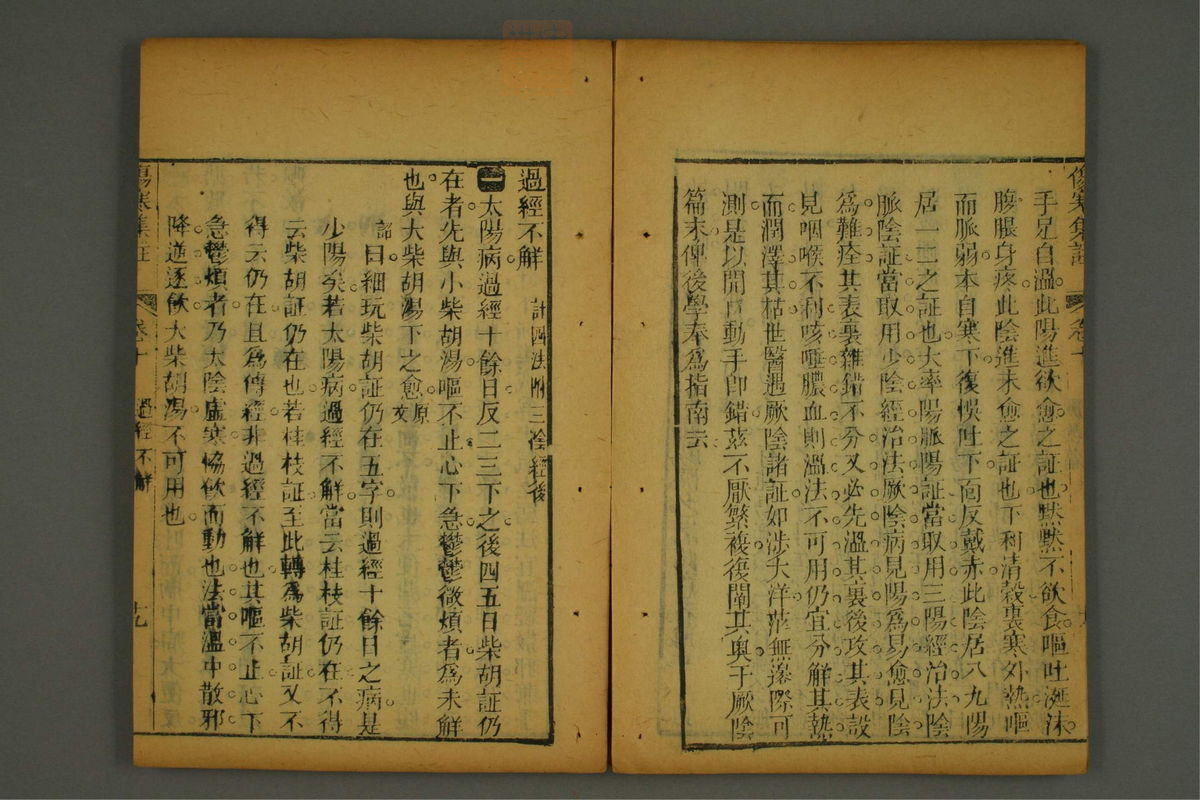 手足自溫此陽進欲愈之証也默默不飲食嘔吐涎沫
腹脹身疼此陰進未愈之証也下利清穀裏寒外熱嘔
而脈弱本自寒下復悞吐下面反戴赤此陰居八九陽
居一二之証也大率陽脈陽証當取用三陽經治法陰
脈陰証當取用少陰經治法厥陰病見陽爲易愈見陰
爲難痊其表裏雜錯不分又必先溫其裏後攻其表設
見咽喉不利咳唾膿血則溫法不可用仍宜分解其熱
而潤澤其枯世醫遇厥陰諸証如涉大洋茫無邊際可
測是以開口動手即錯茲不厭繁複復闡其奥于厥陰
篇末俾後學奉爲指南云
過經不解 計四法附三陰經後
一太陽病過經十餘日反二三下之後四五日柴胡証仍
在者先與小柴胡湯嘔不止心下急鬱鬱微煩者爲未解
也與大柴胡湯下之愈原文
諮曰細玩柴胡証仍在五字則過經十餘日之病是
少陽矣若太陽病過經不解當云桂枝証仍在不得
云柴胡証仍在也若桂枝証至此轉爲柴胡証又不
得云仍在且爲傳經非過經不解也其嘔不止心下
急鬱煩者乃太陰虛寒協飲而動也法當溫中散邪
降逆逐飲大柴胡湯不可用也
卷十 過經不解 十九